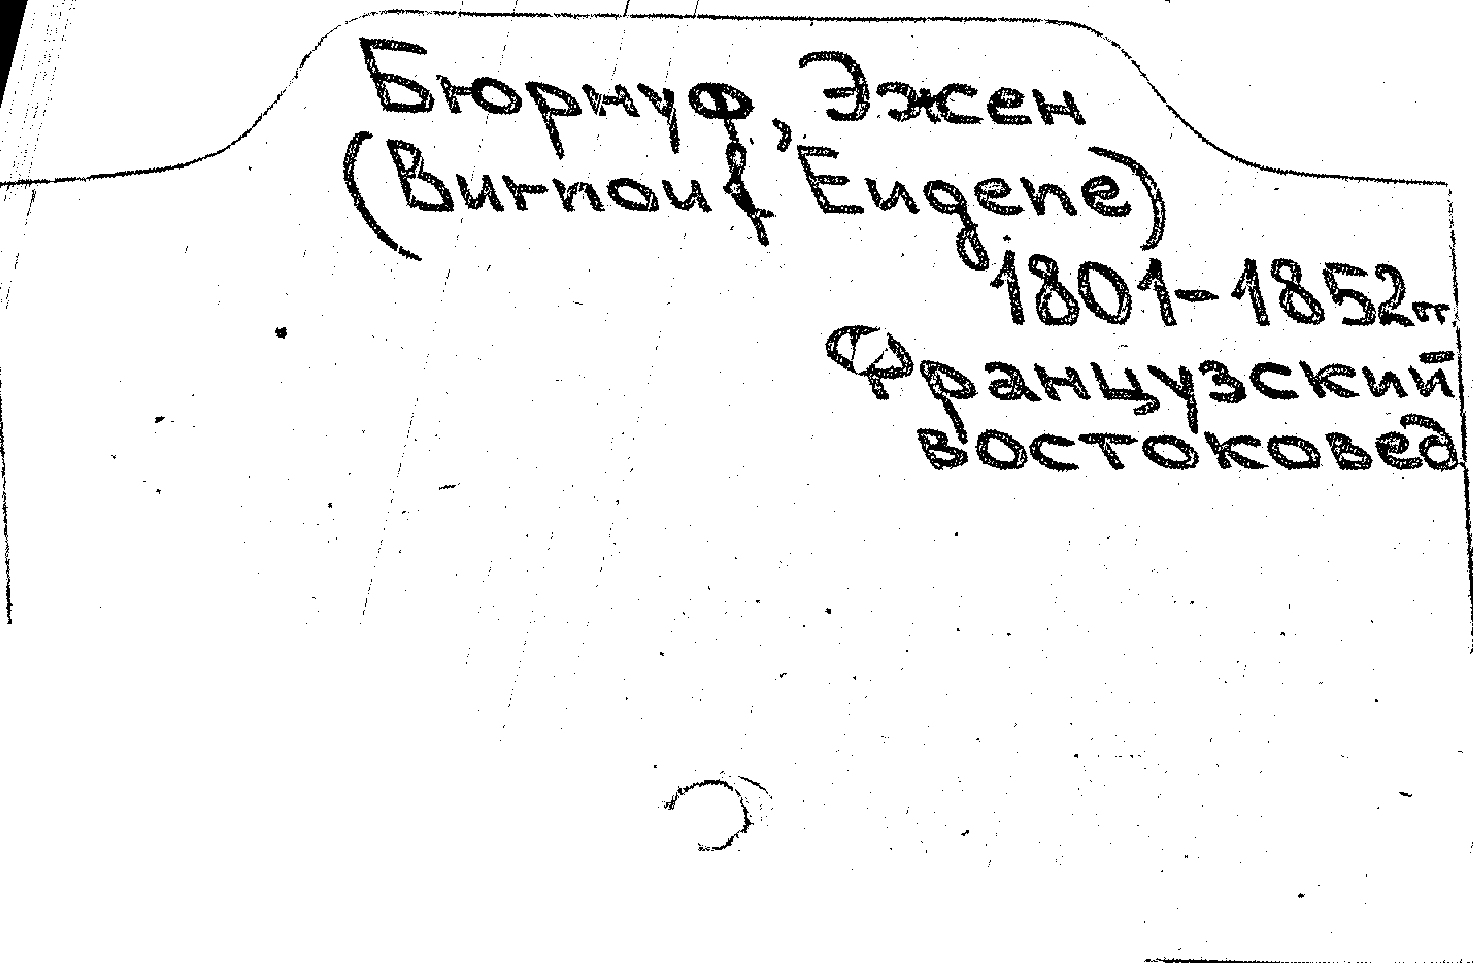 Бюрнуф, Эжен
(Burnouf Eugene)
1801-1852гг
Французский
востоковед